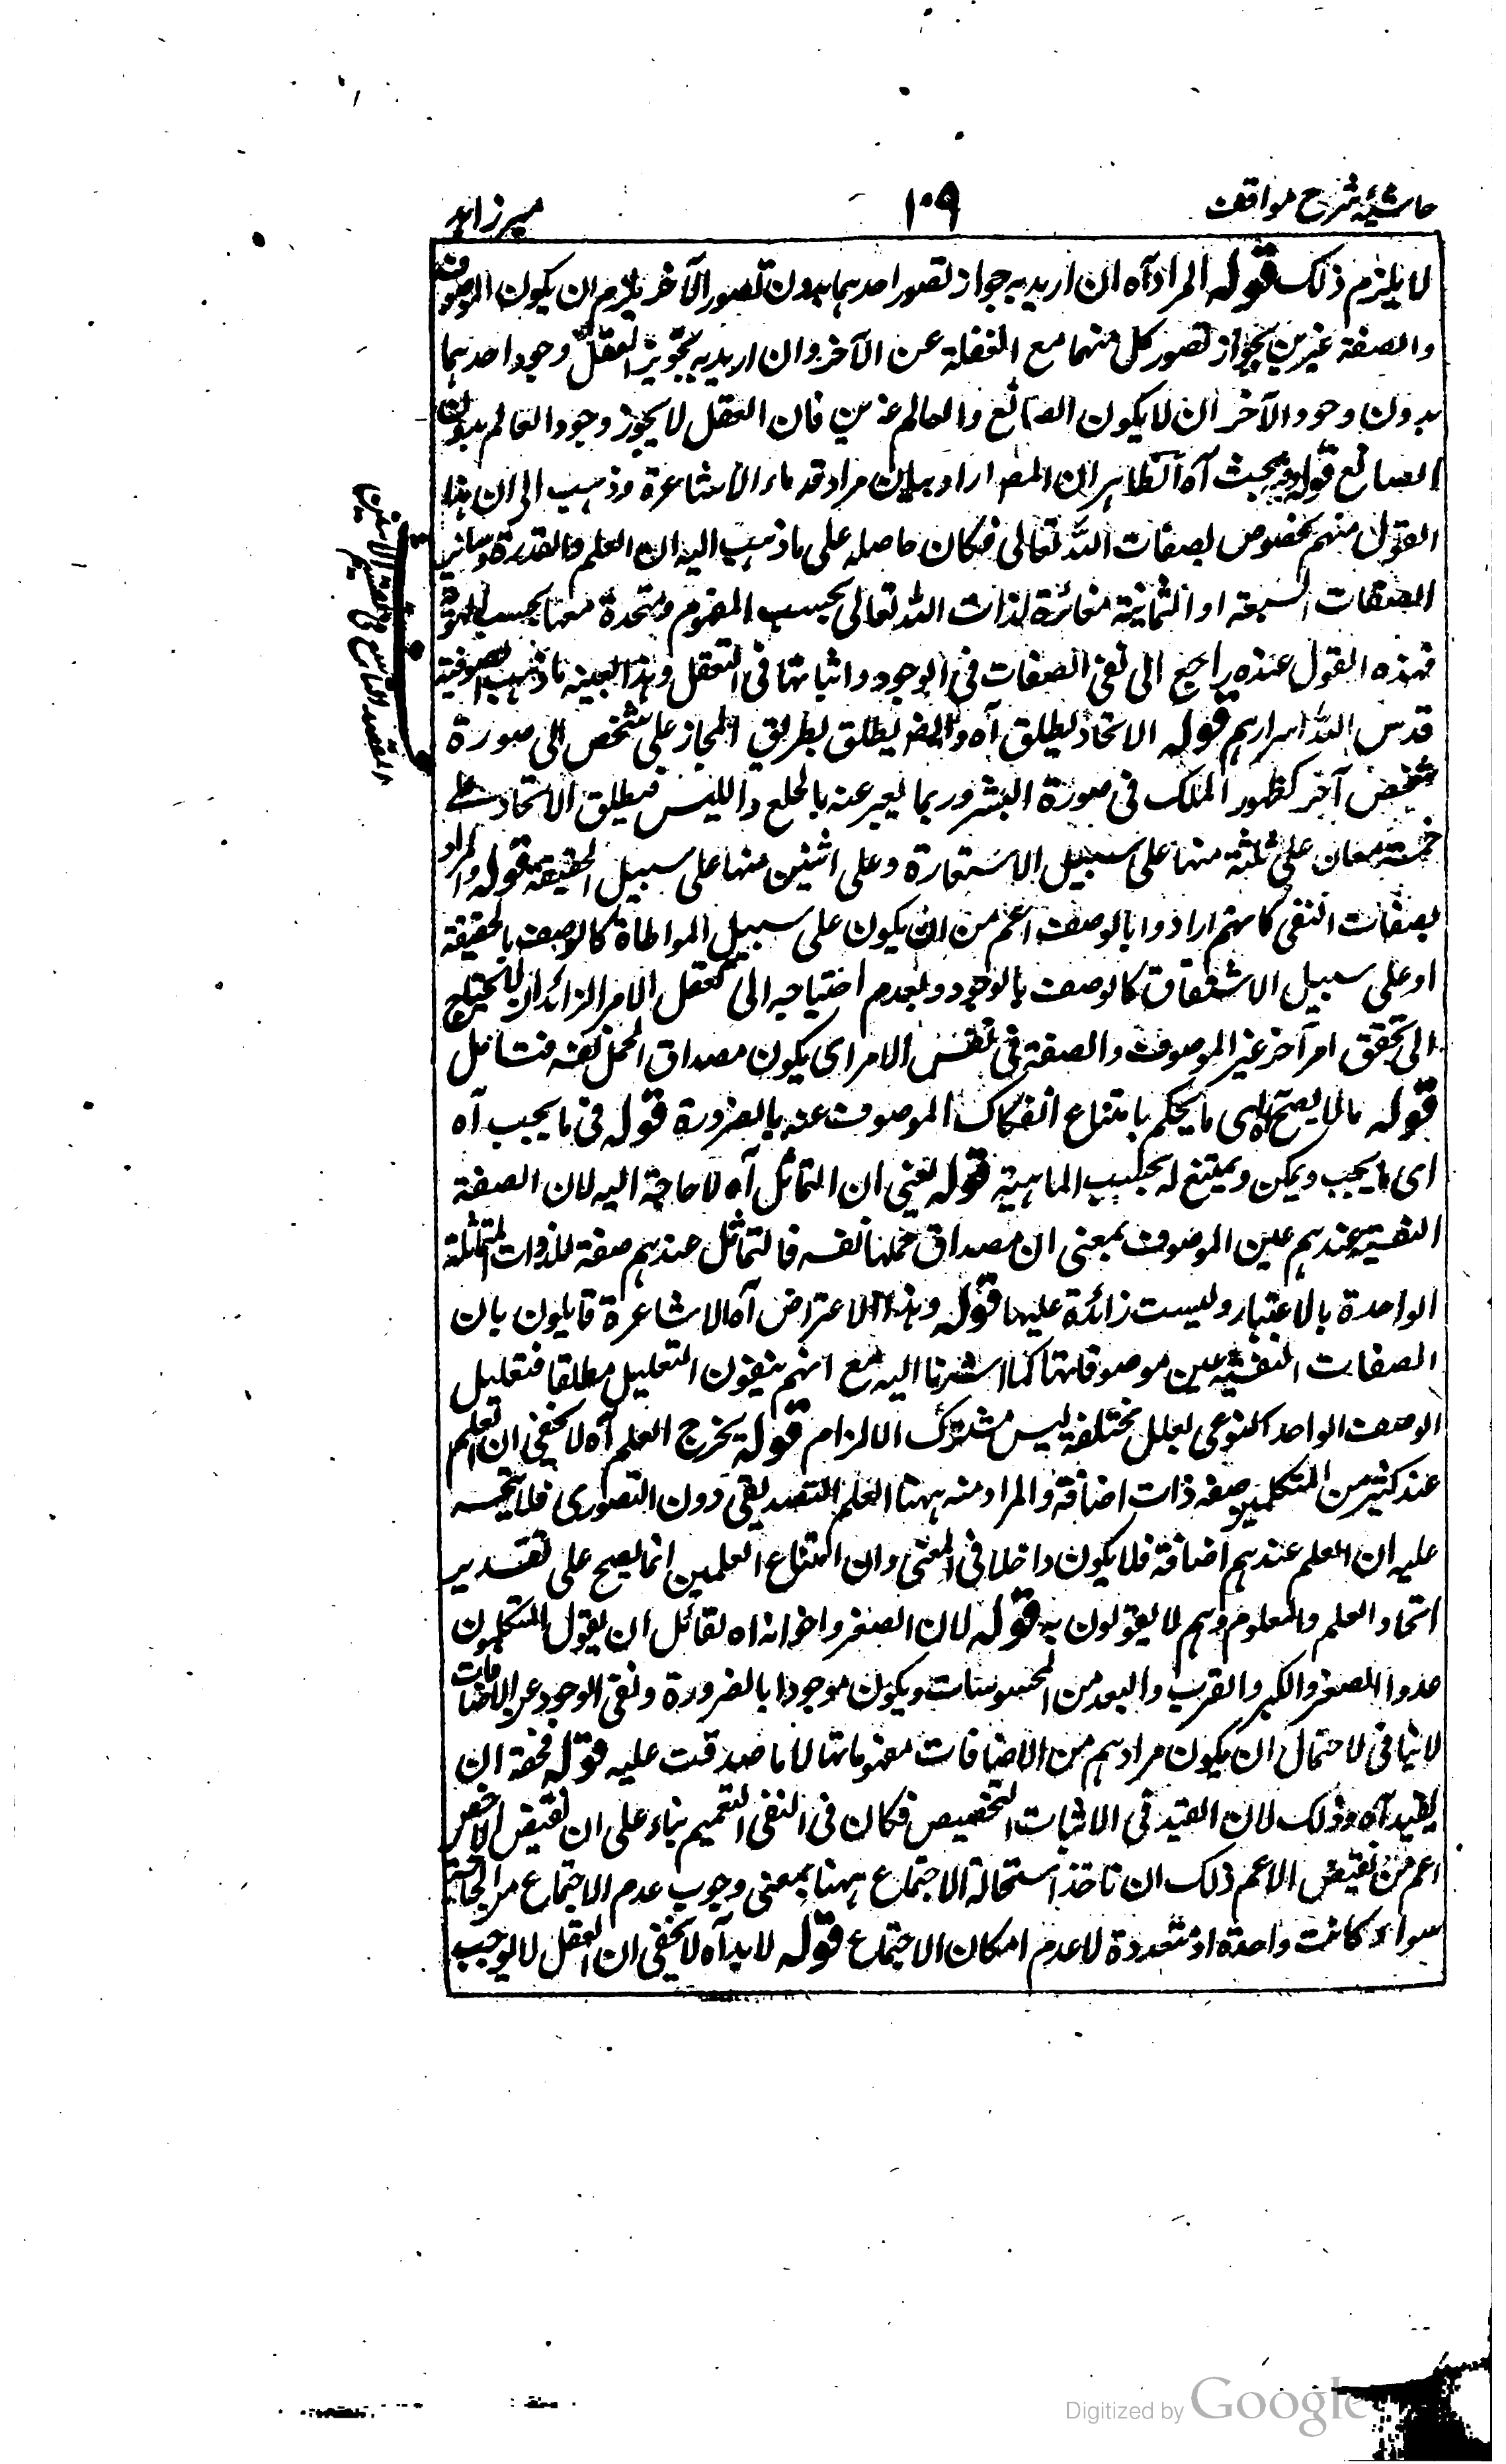 حاشیہ شرح مواقف
۱۰۹
میرزاہد
لا یلزم ذلک قولہ المراد آہ ان ارید بہ جواز تصور احدہما بدون تصور الآخر یلزم ان یکون الموصوف
والصفۃ غیرین بجواز تصور کل منہما مع الغفلۃ عن الآخر وان ارید بہ تجویز العقل وجود احدہما
بدون وجود الآخر ان لا یکون الصانع والعالم غیرین فان العقل لا یجوز وجود العالم بدون
الصانع قولہ وفیہ بحث آہ الظاہر ان المصـ اراد بیان مراد قدماء الاشاعرۃ وذہب الی ان ہذا
القول منہم مخصوص بصفات اللہ تعالی فکان حاصلہ علی ما ذہب الیہ ان العلم والقدرۃ وسائر
الصفات السبعۃ او الثمانیۃ مغائرۃ لذات اللہ تعالی بحسب المفہوم ومتحدۃ معہا بحسب الہویۃ
فہذہ القول عندہ راجع الی نفی الصفات فی الوجود واثباتہا فی التعقل وہذا بعینہ ما ذہب الصوفیۃ
قدس اللہ اسرارہم قولہ الاتحاد یطلق آہ وایضا یطلق بطریق المجاز علی شخص الی صورۃ
شخص آخر کظہور الملک فی صورۃ البشر وربما یعبر عنہ بالخلع واللبس فیطلق الاتحاد علی
خمسۃ معان علی ثلثۃ منہا علی سبیل الاستعارۃ وعلی اثنین منہا علی سبیل الحقیقۃ قولہ والمراد
بصفات النفی کانہم ارادوا بالوصف اعم من ان یکون علی سبیل المواطاۃ کالوصف بالحقیقۃ
او علی سبیل الاشتقاق کالوصف بالوجود وبعدم احتیاجہ الی تعقل الامر الزائد ان لا یحتاج
الی تحقق امر آخر غیر الموصوف والصفۃ فی نفس الامر ای یکون مصداق الحمل نفسہ فتامل
قولہ ما لا یصح آہ ای ما یحکم بامتناع انفکاک الموصوف عنہ بالضرورۃ قولہ فی ما یجب آہ
ای ما یجب ویمکن ویمتنع لہ بحسب الماہیۃ قولہ یعنی ان التماثل آہ لا حاجۃ الیہ لان الصفۃ
النفسیۃ عندہم عین الموصوف بمعنی ان مصداق حملہا نفسہ فالتماثل عندہم صفۃ للذوات المتماثلۃ
الواحدۃ بالاعتبار ولیست زائدۃ علیہا قولہ وہذا الاعتراض آہ الاشاعرۃ قایلون بان
الصفات النفسیۃ عین موصوفاتہا کما اشرنا الیہ مع انہم ینفون التعلیل مطلقا فتعلیل
الوصف الواحد النوعی بعلل مختلفۃ لیس مشترک الالزام قولہ یخرج العلم آہ لا یخفی ان العلم
عند کثیر من المتکلمین صفۃ ذات اضافۃ والمراد منہ ہہنا العلم التصدیقی دون التصوری فلا یتجہ
علیہ ان العلم عندہم اضافۃ فلا یکون داخلا فی المعنی وان امتناع العلمین انما یصح علی تقدیر
اتحاد العلم والمعلوم وہم لا یقولون بہ قولہ لان الصغر واخواتہ آہ لقائل ان یقول المتکلمون
عدوا الصغر والکبر والقرب والبعد من المحسوسات ویکون موجودا بالضرورۃ ونفی الوجود عن الاضافات
لا ینافی لاحتمال ان یکون مرادہم من الاضافات مفہوماتہا لا ما صدقت علیہ قولہ فحقہ ان
یفید آہ وذلک لان القید فی الاثبات التخصیص فکان فی النفی التعمیم بناء علی ان نقیض الاخص
اعم من نقیض الاعم ذلک ان تاخذ استحالۃ الاجتماع ہہنا بمعنی وجوب عدم الاجتماع من الجانبین
سواء کانت واحدۃ او متعددۃ لا عدم امکان الاجتماع قولہ لا بد آہ لا یخفی ان العقل لا یوجب
المقصد التاسع فی
Digitized by Google